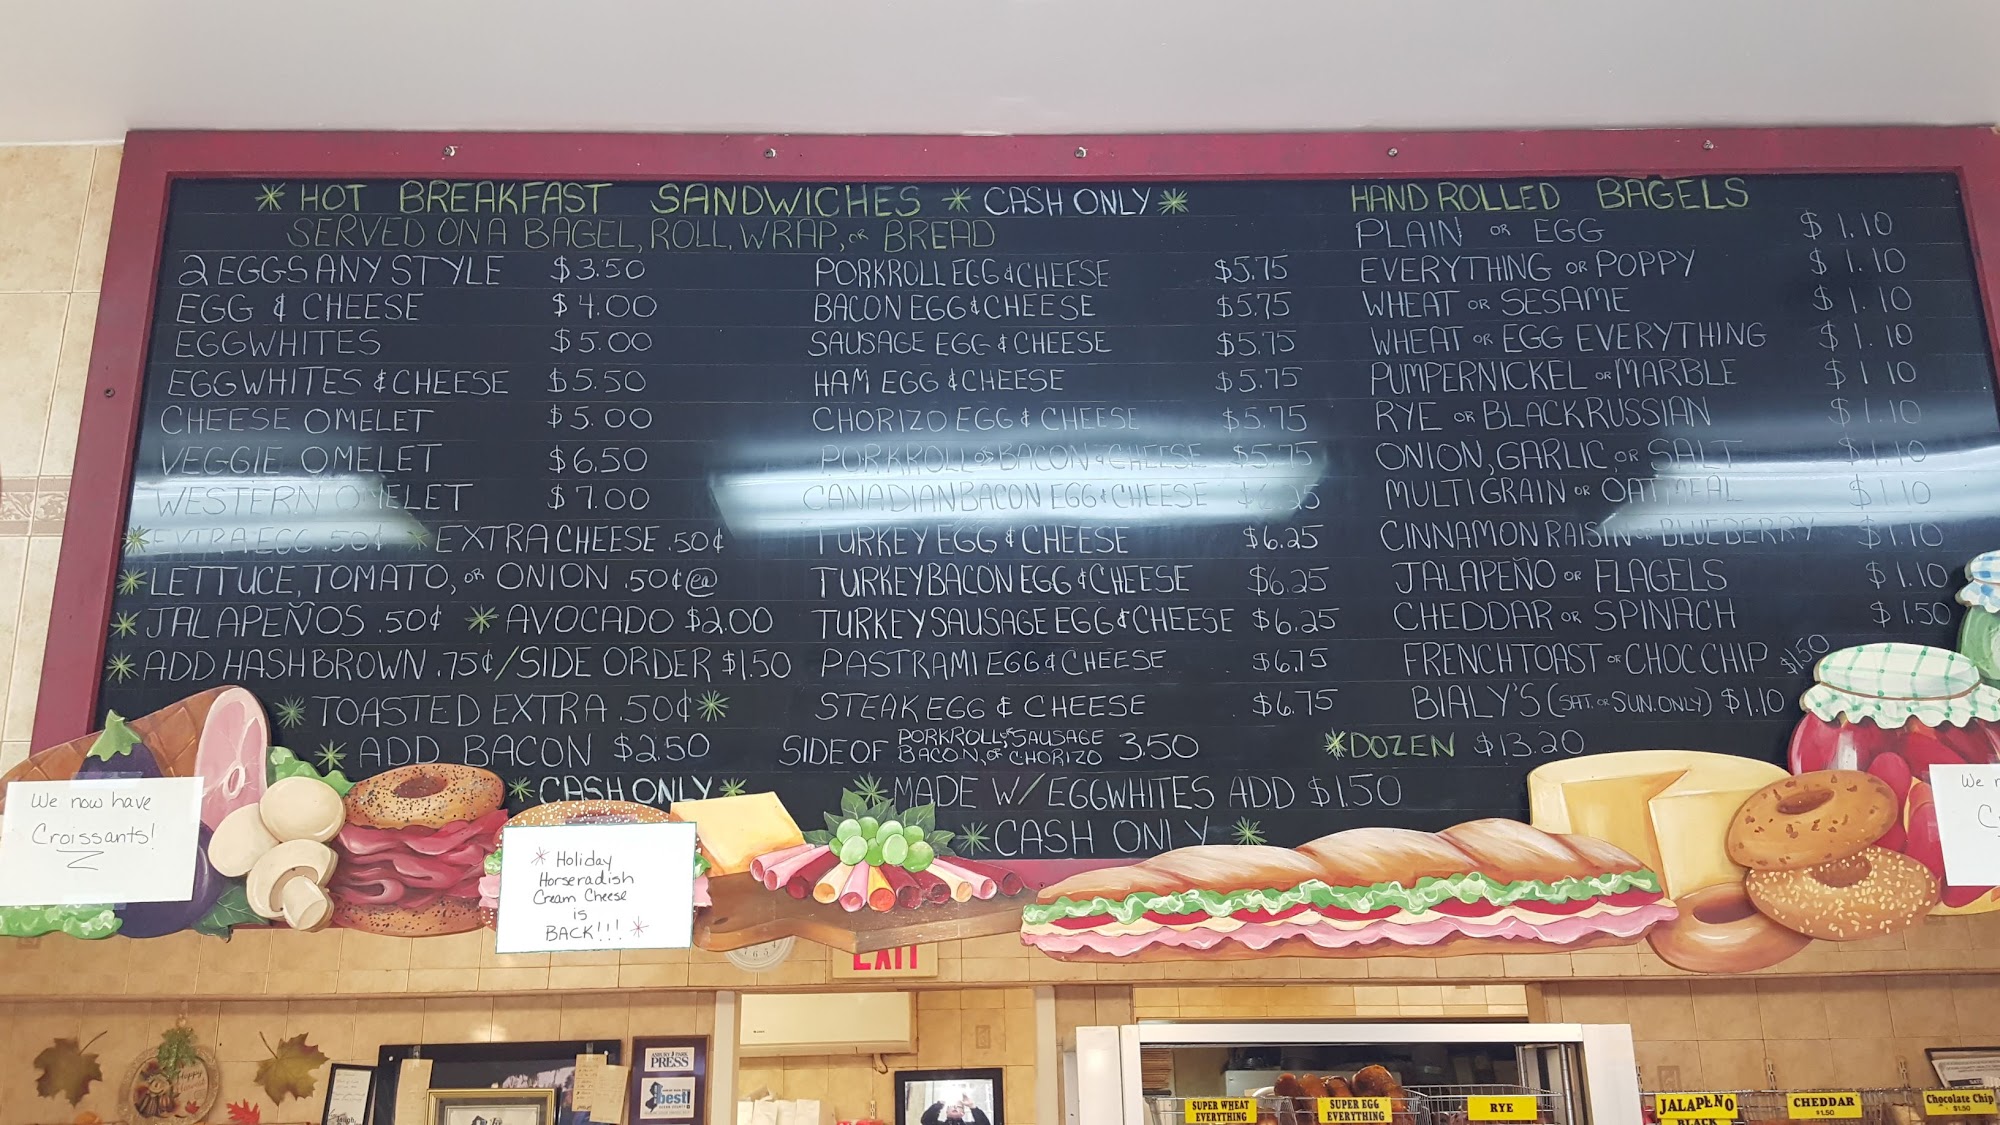 * HOT BREAKFAST SANDWICHES * CASH ONLY *
SERVED ON A BAGEL, ROLL, WRAP, or BREAD
2 EGGS ANY STYLE $3.50
EGG & CHEESE $4.00
EGGWHITES $5.00
EGGWHITES & CHEESE $5.50
CHEESE OMELET $5.00
VEGGIE OMELET $6.50
WESTERN OMELET $7.00
* EXTRA EGG .50¢ * EXTRA CHEESE .50¢
* LETTUCE, TOMATO, or ONION .50¢ @ea
* JALAPEÑOS .50¢ * AVOCADO $2.00
* ADD HASHBROWN .75¢/SIDE ORDER $1.50
* TOASTED EXTRA .50¢ *
* ADD BACON $2.50
* CASH ONLY *
PORKROLL EGG & CHEESE $5.75
BACON EGG & CHEESE $5.75
SAUSAGE EGG & CHEESE $5.75
HAM EGG & CHEESE $5.75
CHORIZO EGG & CHEESE $5.75
PORKROLL or BACON & CHEESE $5.75
CANADIAN BACON EGG & CHEESE $6.25
TURKEY EGG & CHEESE $6.25
TURKEY BACON EGG & CHEESE $6.25
TURKEY SAUSAGE EGG & CHEESE $6.25
PASTRAMI EGG & CHEESE $6.75
STEAK EGG & CHEESE $6.75
SIDE OF PORKROLL, SAUSAGE BACON, or CHORIZO 3.50
* MADE W/ EGGWHITES ADD $1.50
* CASH ONLY *
HAND ROLLED BAGELS
PLAIN OR EGG $1.10
EVERYTHING OR POPPY $1.10
WHEAT OR SESAME $1.10
WHEAT OR EGG EVERYTHING $1.10
PUMPERNICKEL OR MARBLE $1 10
RYE OR BLACK RUSSIAN $1.10
ONION, GARLIC, OR SALT $1.10
MULTIGRAIN OR OATMEAL $1.10
CINNAMON RAISIN OR BLUEBERRY $1.10
JALAPEÑO OR FLAGELS $1.10
CHEDDAR OR SPINACH $1.50
FRENCH TOAST OR CHOC CHIP $1.50
BIALY'S (SAT. OR SUN. ONLY) $1.10
* DOZEN $13.20
We now have
Croissants!
* Holiday
Horseradish
Cream Cheese
is
BACK!!! *
We
EXIT
Happy
ASBURY PARK
PRESS
best
SUPER WHEAT
EVERYTHING
SUPER EGG
EVERYTHING
RYE
JALAPENO
BLACK
CHEDDAR
$1.50
Chocolate Chip
$1.50